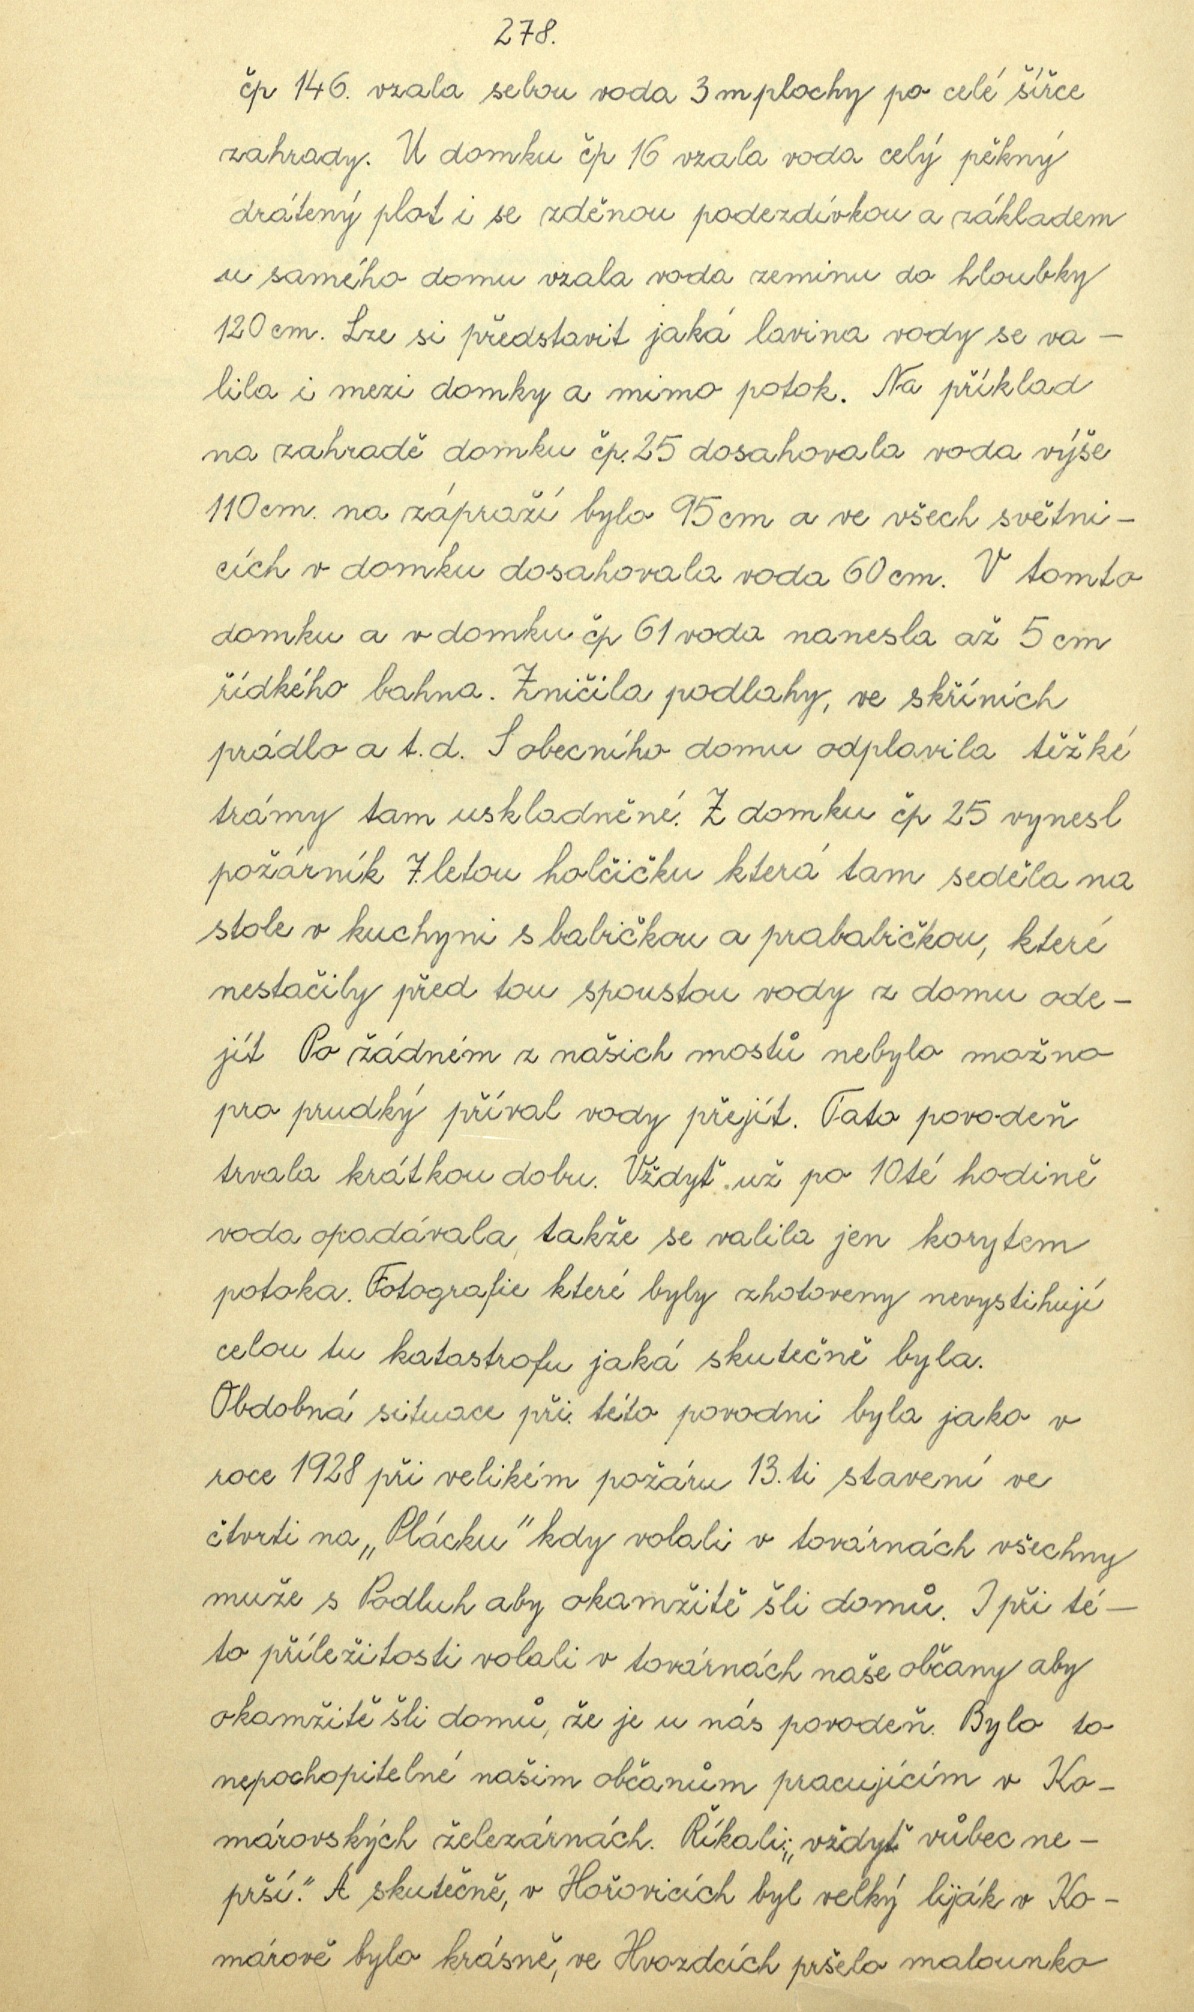 278.
čp 146. vzala sebou voda 3 m plochy po celé šířce
zahrady. U domku čp 16 vzala voda celý pěkný
drátený plot i se zděnou podezdívkou a základem
u samého domu vzala voda zeminu do hloubky
120 cm. Lze si představit jaká lavina vody se va-
lila i mezi domky a mimo potok. Na příklad
na zahradě domku čp. 25 dosahovala voda výše
110 cm. na zápraží bylo 95 cm a ve všech světni-
cích v domku dosahovala voda 60 cm. V tomto
domku a v domku čp 61 voda nanesla až 5 cm
řídkého bahna. Zničila podlahy, ve skříních
prádlo a t. d. S obecního domu odplavila těžké
trámy tam uskladněné. Z domku čp 25 vynesl
požárník 7.letou holčičku která tam seděla na
stole v kuchyni s babičkou a prababičkou, které
nestačily před tou spoustou vody z domu ode-
jít Po žádném z našich mostů nebylo možno
pro prudký příval vody přejít. Tato povodeň
trvala krátkou dobu. Vždyť už po 10té hodině
voda opadávala, takže se valila jen korytem
potoka. Fotografie které byly zhotoveny nevystihují
celou tu katastrofu jaká skutečně byla.
Obdobná situace při této povodni byla jako v
roce 1928 při velikém požáru 13.ti stavení ve
čtvrti na „Plácku" kdy volali v továrnách všechny
muže s Podluh aby okamžitě šli domů. I při té-
to příležitosti volali v továrnách naše občany aby
okamžitě šli domů, že je u nás povodeň. Bylo to
nepochopitelné našim občanům pracujícím v Ko-
márovských železárnách. Říkali: „vždyť vůbec ne-
prší." A skutečně, v Hořovicích byl velký liják v Ko-
márově bylo krásně, ve Hvozdcích pršelo malounko